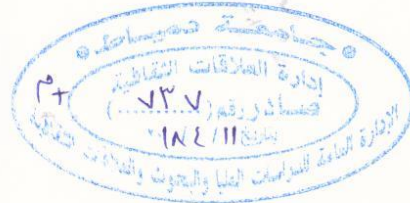 جامعة دمياط
إدارة العلاقات الثقافية
صادر رقم (٧٣٧)
بتاريخ
الإدارة العامة للدراسات العليا والبحوث والعلاقات الثقافية